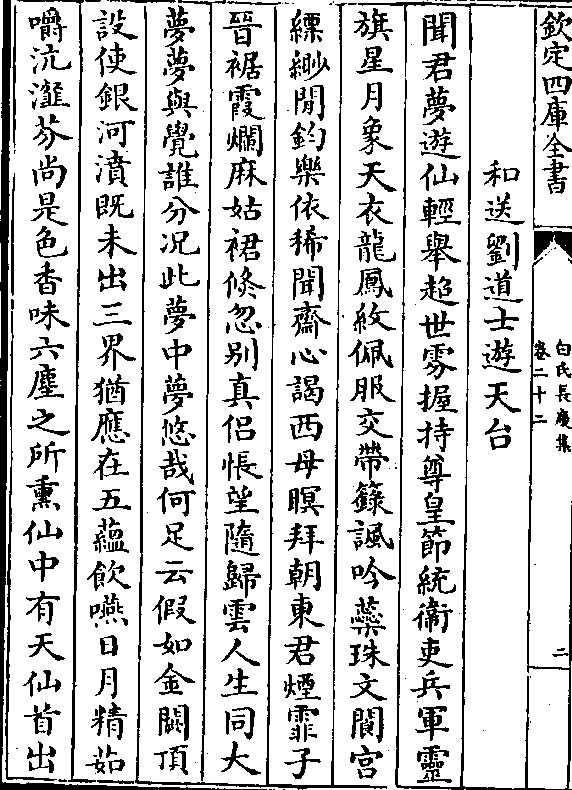 欽定四庫全書
白氏長慶集
卷二十二
二
和送劉道士遊天台
聞君夢遊仙輕舉超世雰握持尊皇節統衛吏兵軍靈
旗星月象天衣龍鳳紋佩服交帶籙諷吟蘂珠文閬宮
縹緲間鈞樂依稀聞齋心謁西母暝拜朝東君煙霏子
晉裾霞爛麻姑裙倐忽别真侣悵望隨歸雲人生同大
夢夢與覺誰分况此夢中夢悠哉何足云假如金闕頂
設使銀河濆既未出三界猶應在五蘊飲嚥日月精茹
嚼沆瀣芬尚是色香味六塵之所熏仙中有天仙首出